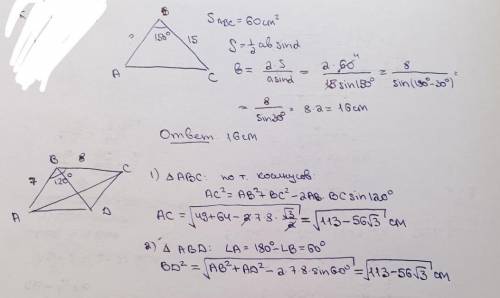 B
S ABC = 60 cm²
150°
15
S = ½ ab sin α
A
C
B = 2·S / a sin α = 2·60 / 15 sin 150° = 8 / sin(180°-30°) =
= 8 / sin 30° = 8·2 = 16 cm
Ответ 16 cm
B 8 C
7 120°
A D
1) △ ABC: по т. косинусов:
AC² = AB² + BC² - 2AB·BC sin 120°
AC = √(49+64-2·7·8·√3/2) = √(113-56√3) см
2) △ ABD: ∠A = 180° - ∠B = 60°
BD² = √(AB² + AD² - 2·7·8·sin 60°) = √(113-56√3) см